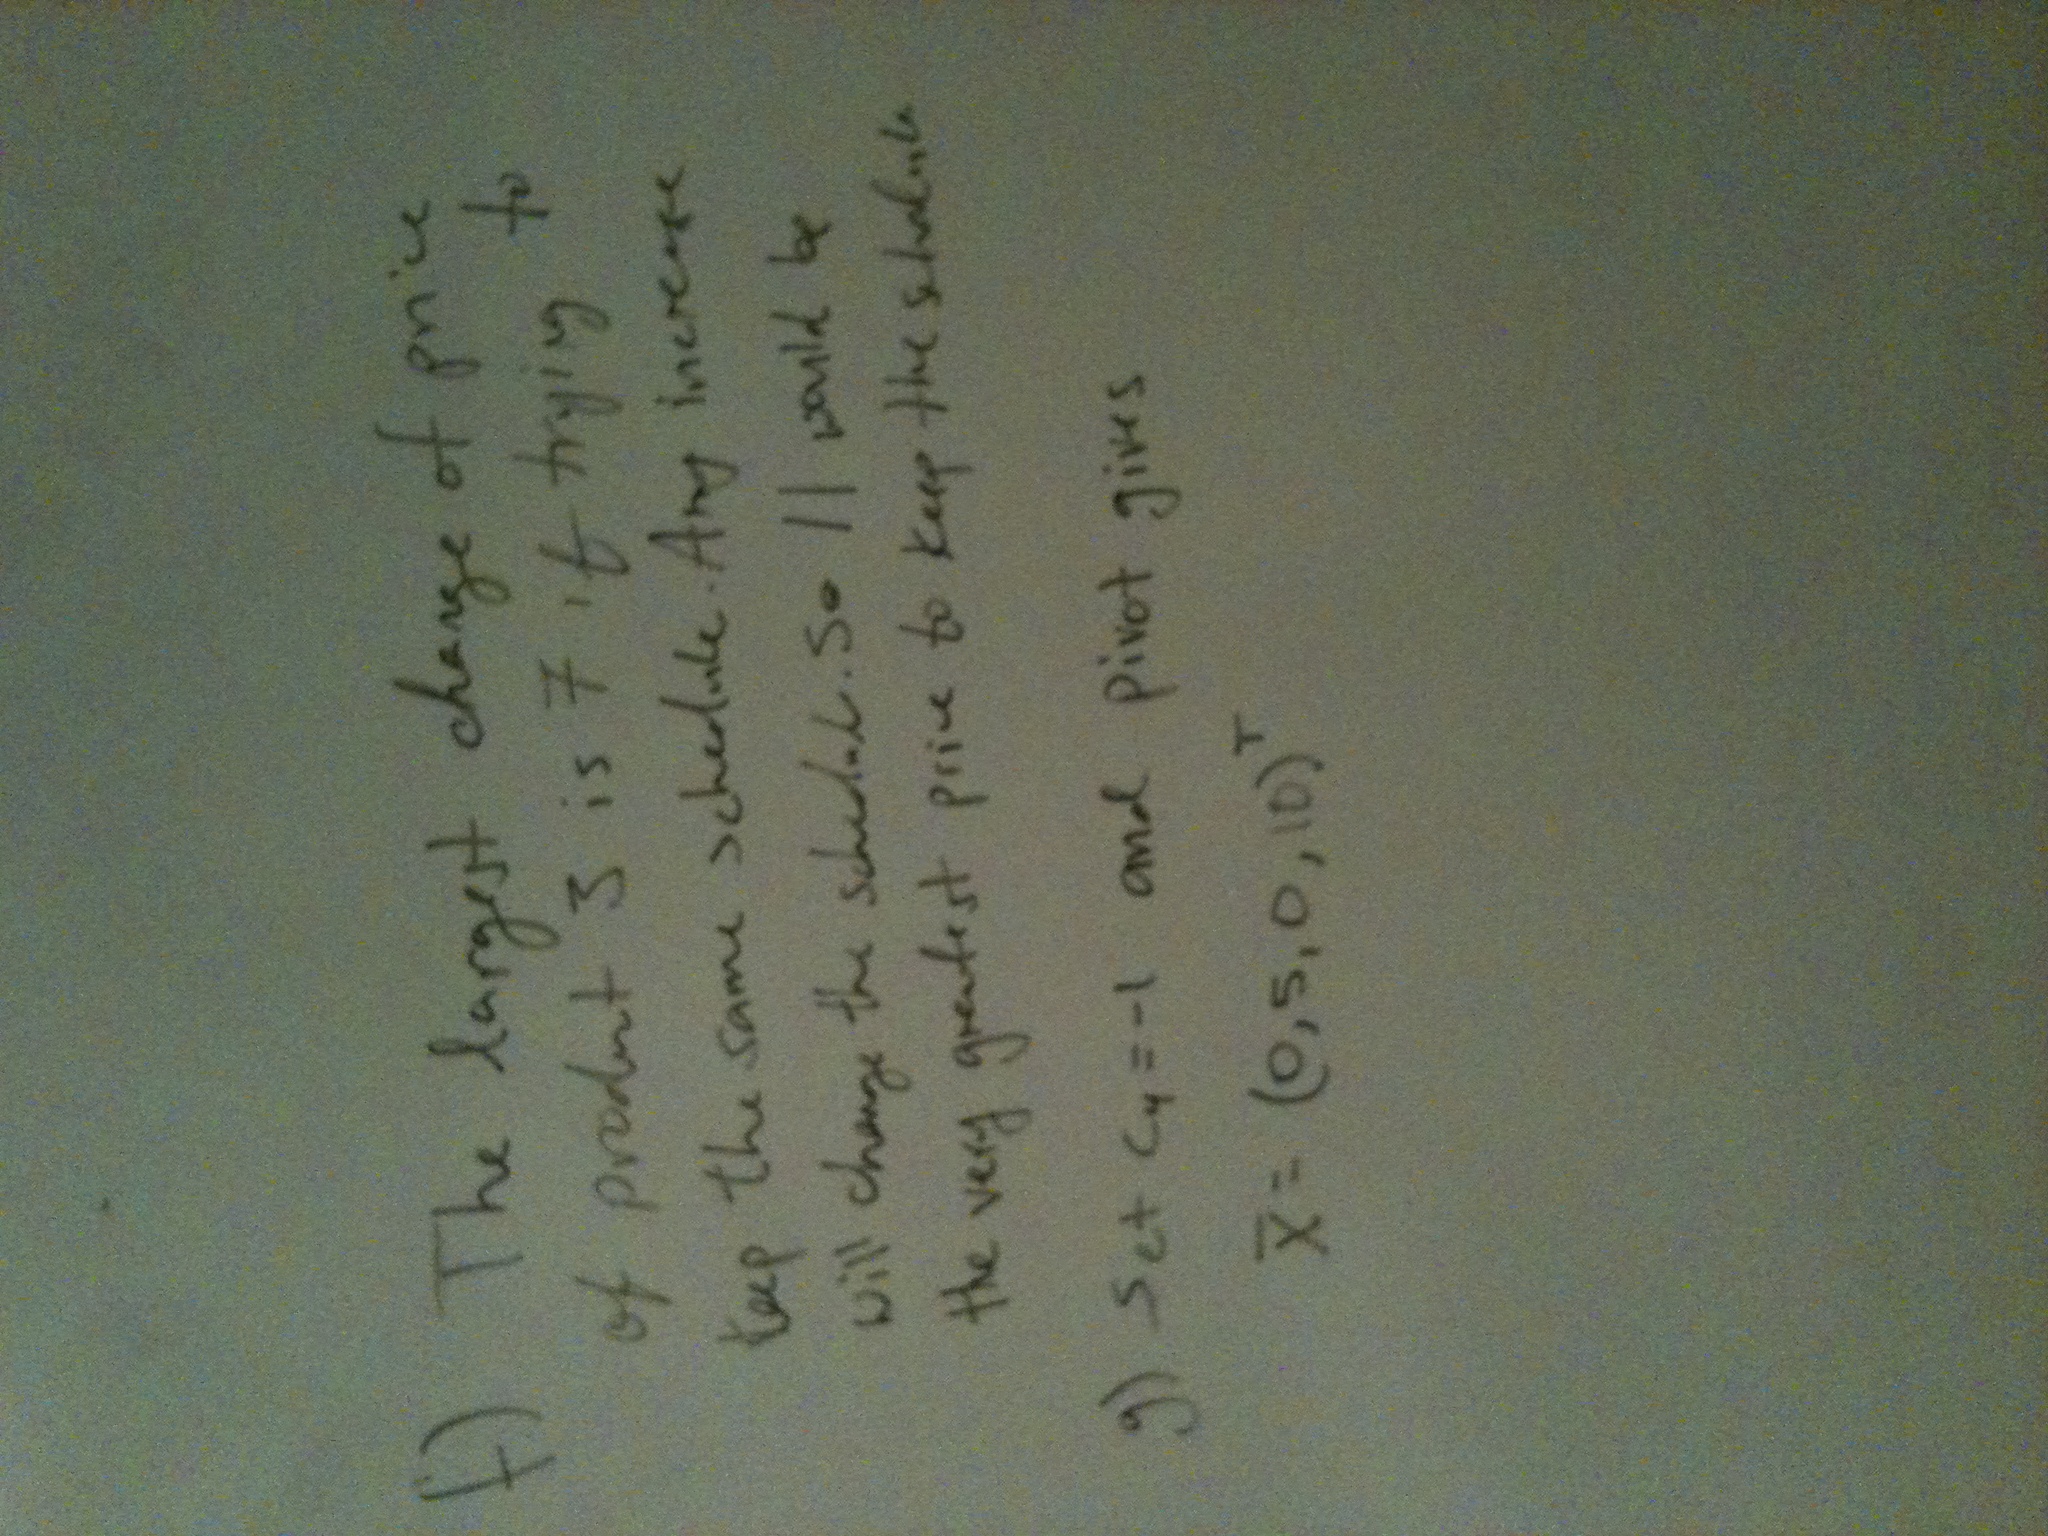 f) The largest change of price
of product 3 is 7 if trying to
keep the same schedule. Any increase
will change the schedule. So 11 would be
the very greatest price to keep the schedule
g) Set c₄=-1 and pivot gives
x̅ = (0,5,0,10)ᵀ